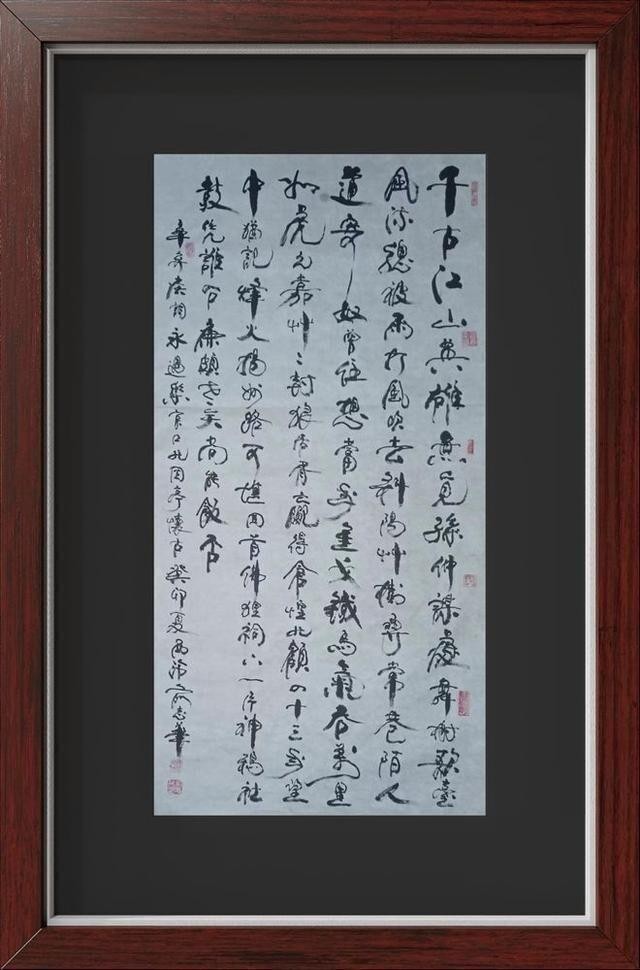 千古江山英雄無覓孫仲謀處舞榭歌臺
風流總被雨打風吹去斜陽艸樹尋常巷陌人
道寄奴曾住想當年金戈鐵馬氣吞萬里
如虎元嘉艸〻封狼居胥贏得倉惶北顧四十三年望
中猶記烽火揚州路可堪回首佛狸祠下一片神鴉社
鼓凭誰問廉頗老矣尚能飯否
辛弃疾詞永遇樂京口北固亭懷古癸卯夏志華